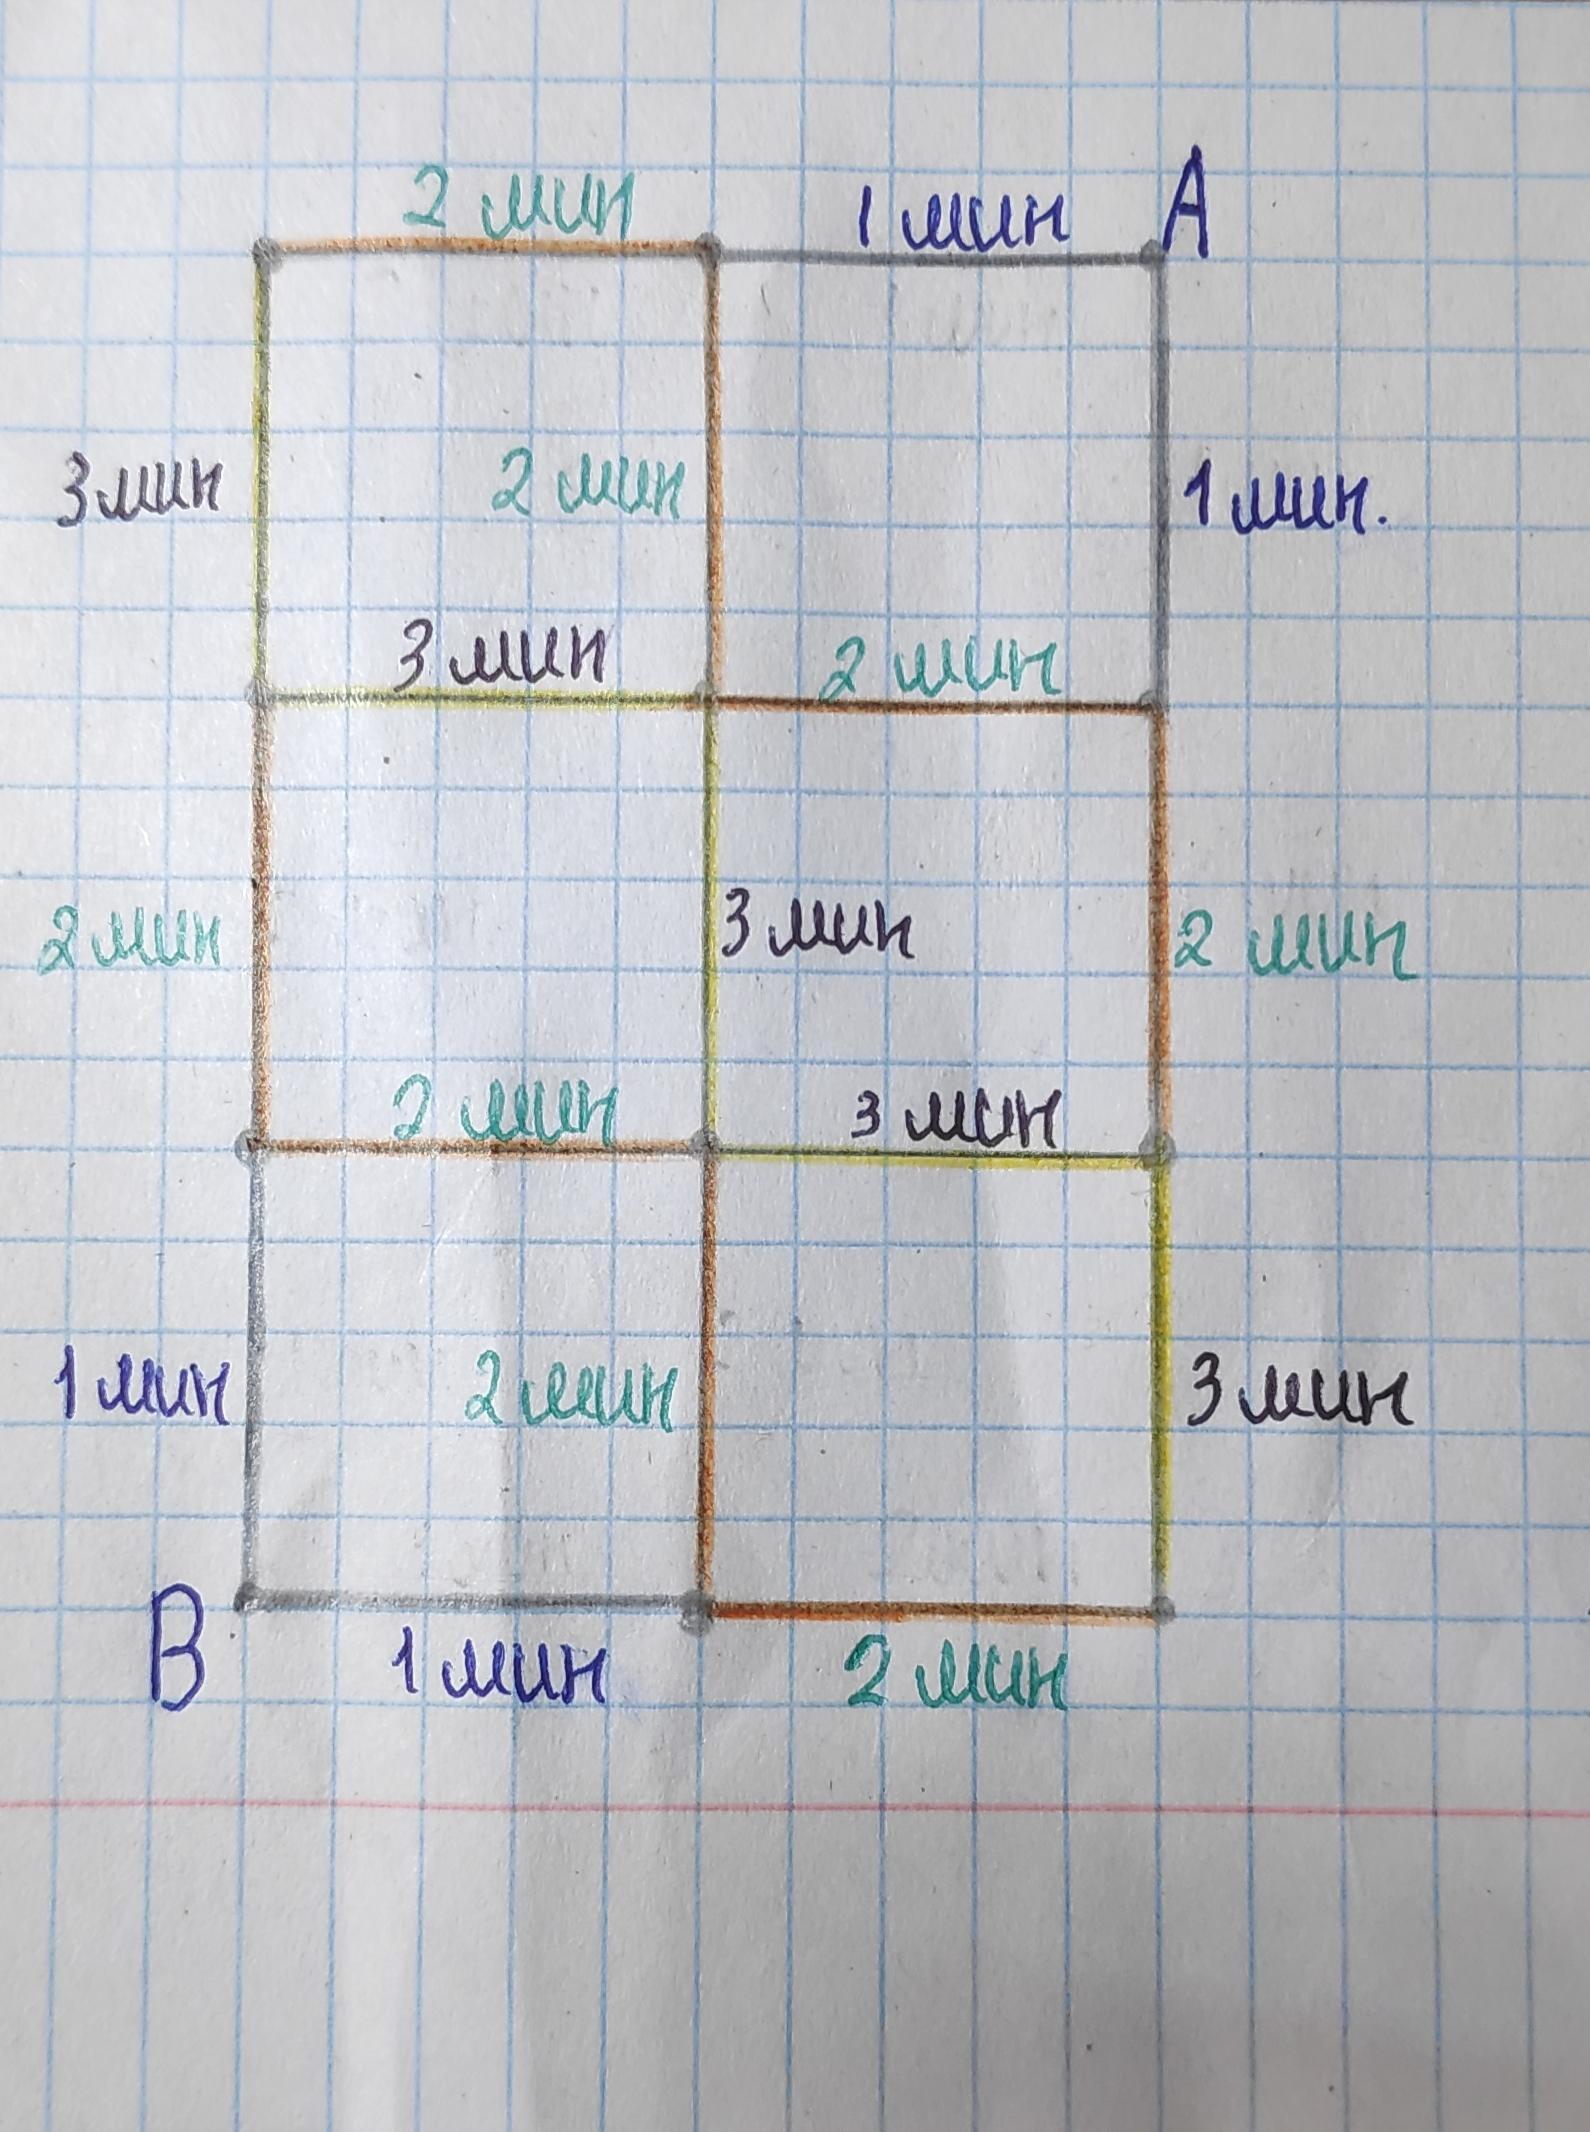 2 мин
1 мин
A
3 мин
2 мин
1 мин.
3 мин
2 мин
2 мин
3 мин
2 мин
2 мин
3 мин
1 мин
2 мин
3 мин
B
1 мин
2 мин